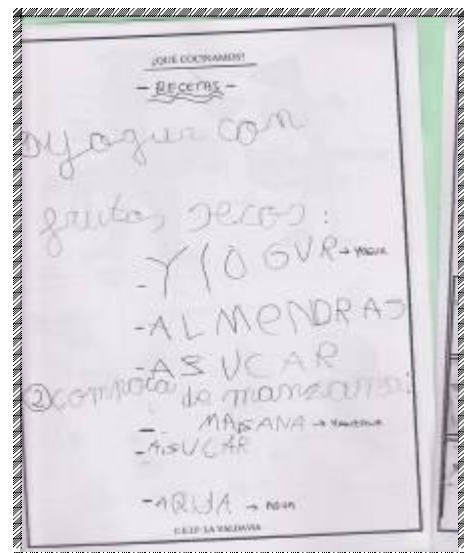 ¿QUÉ COCINAMOS?
- RECETAS -
yogur con
frutos secos:
- YIOGUR → YOGUR
- ALMENDRAS
- ASUCAR
② compota de manzana:
- MASANA → MANZANA
- AISUCAR
- AQUA → AGUA
C.E.I.P. LA VALDAVIA